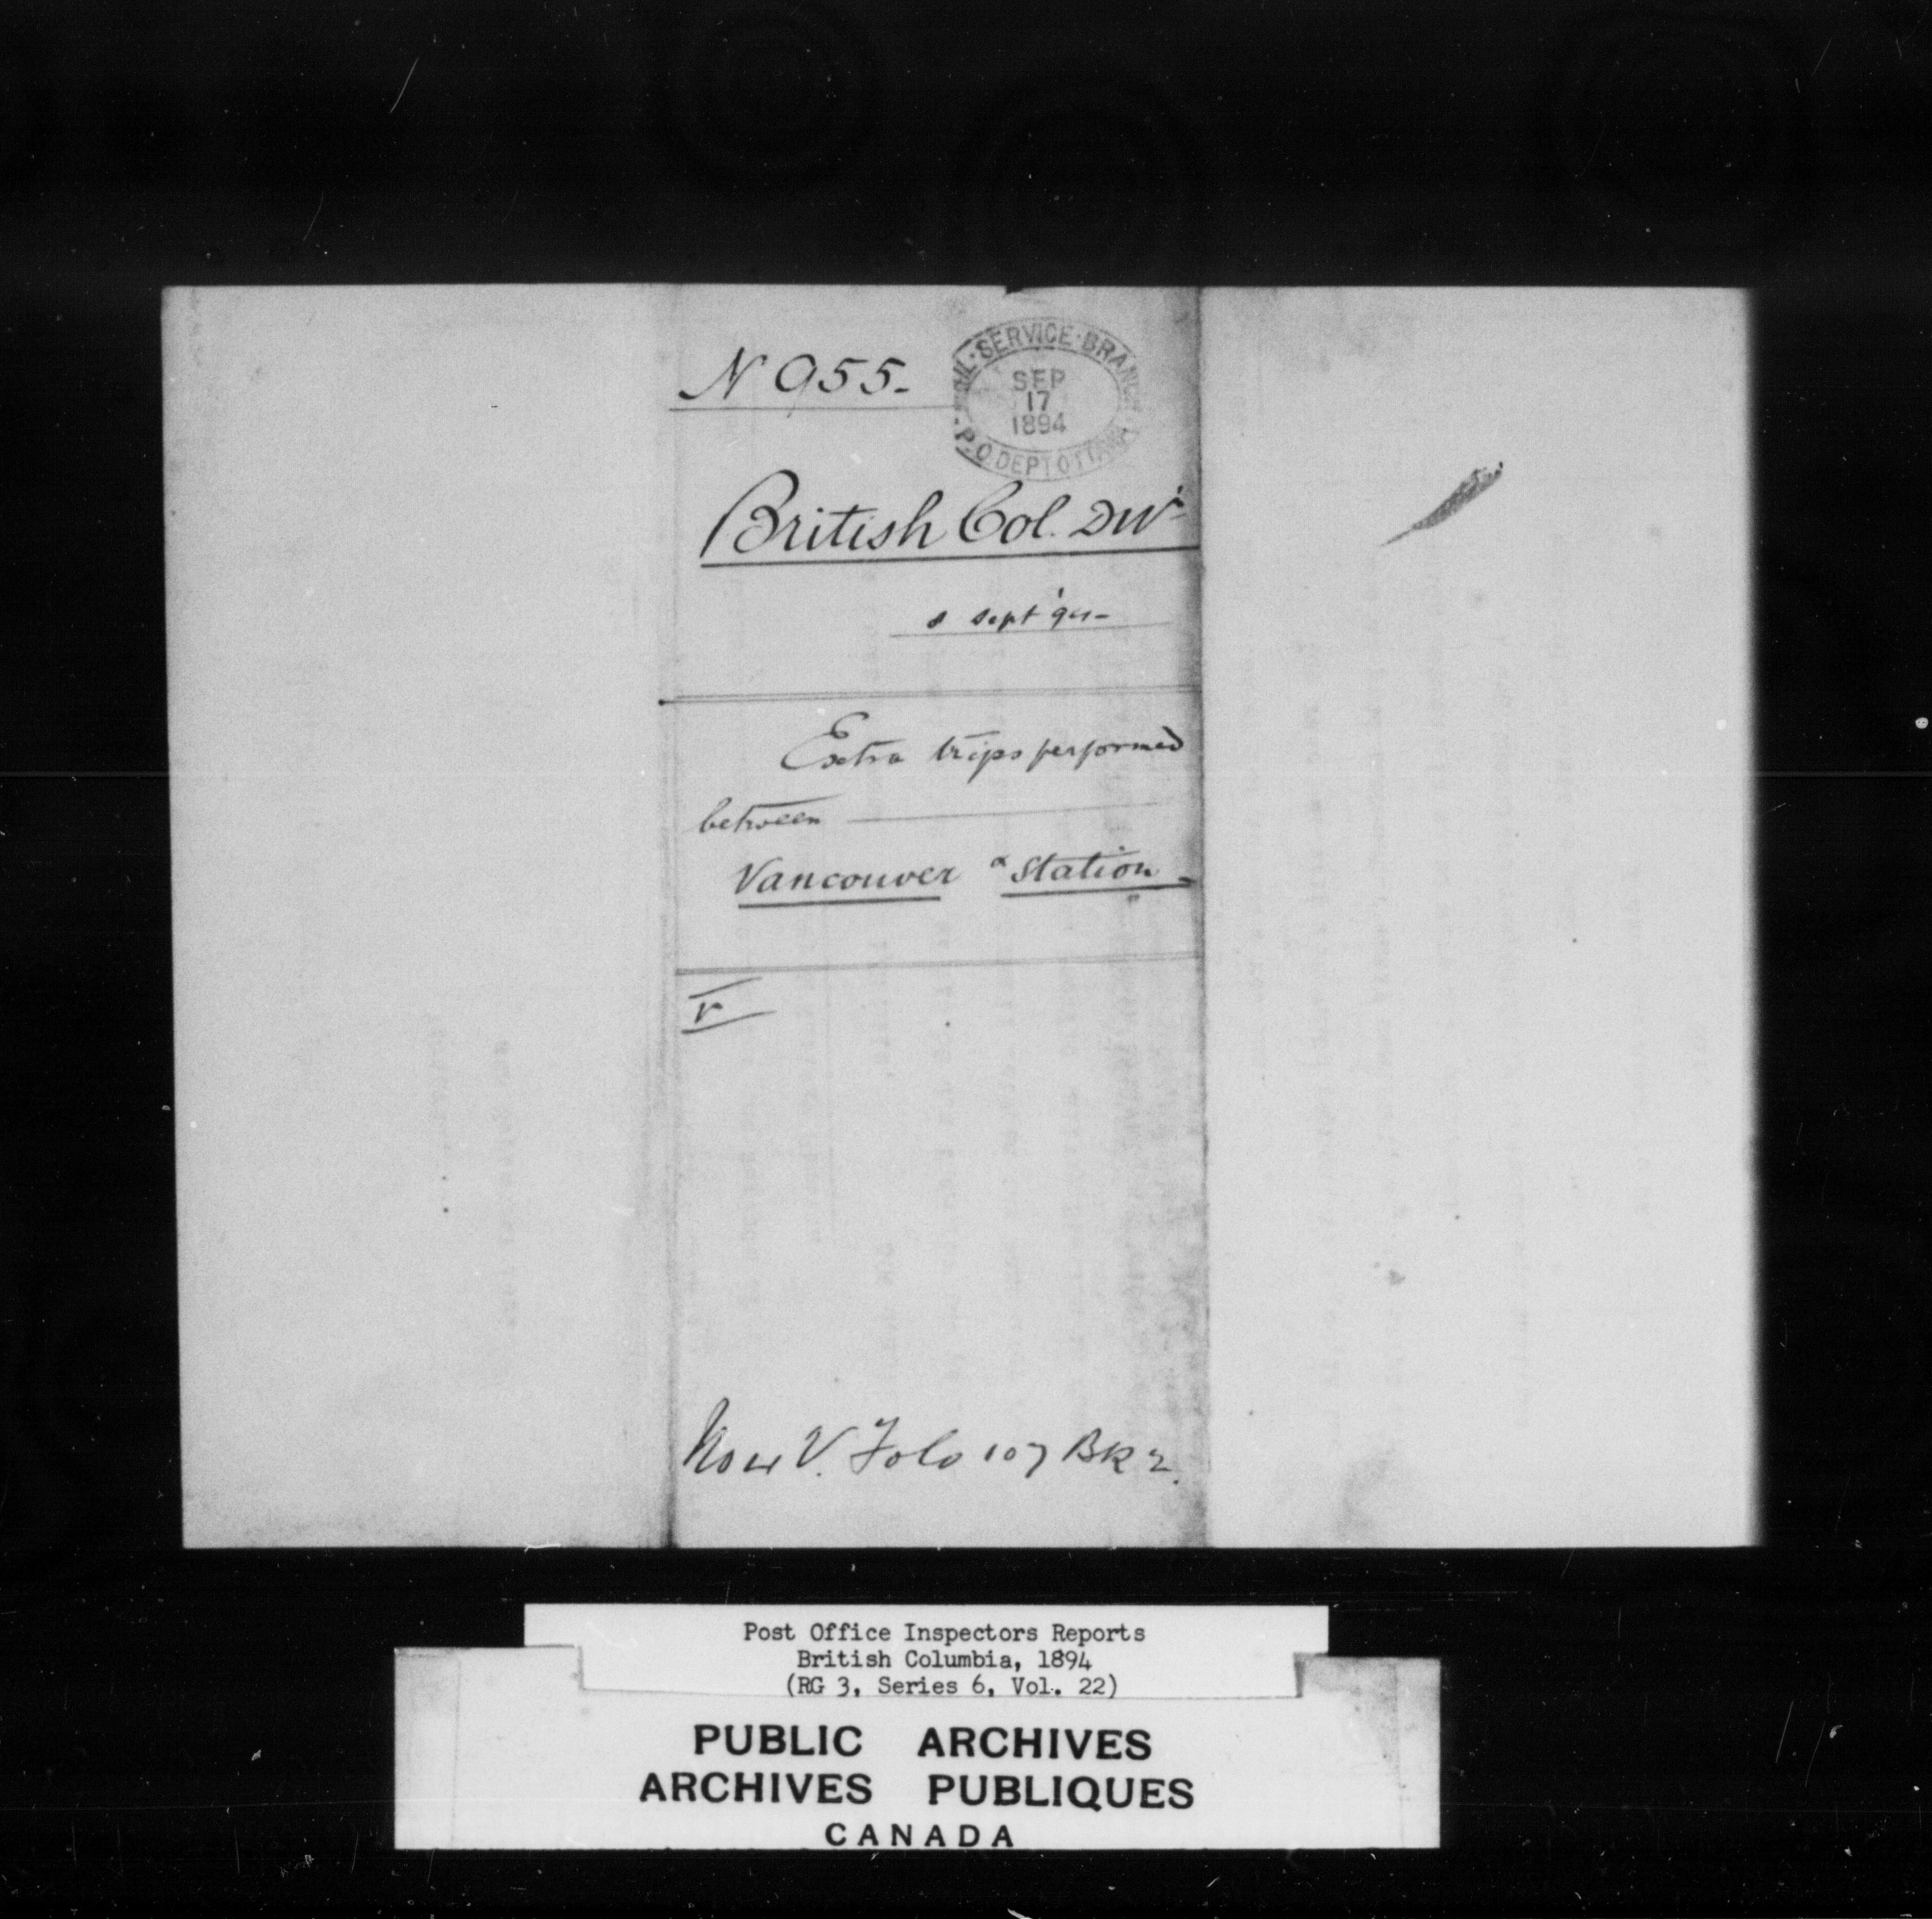 N 955-
MAIL·SERVICE·BRANCH
SEP
17
1894
P.O. DEPT OTTAWA
British Col. Divn
8 Sept '94-
Extra trips performed
between
Vancouver & Station
V
V. Folo 107 BK 2.
Post Office Inspectors Reports
British Columbia, 1894
(RG 3, Series 6, Vol. 22)
PUBLIC ARCHIVES
ARCHIVES PUBLIQUES
CANADA